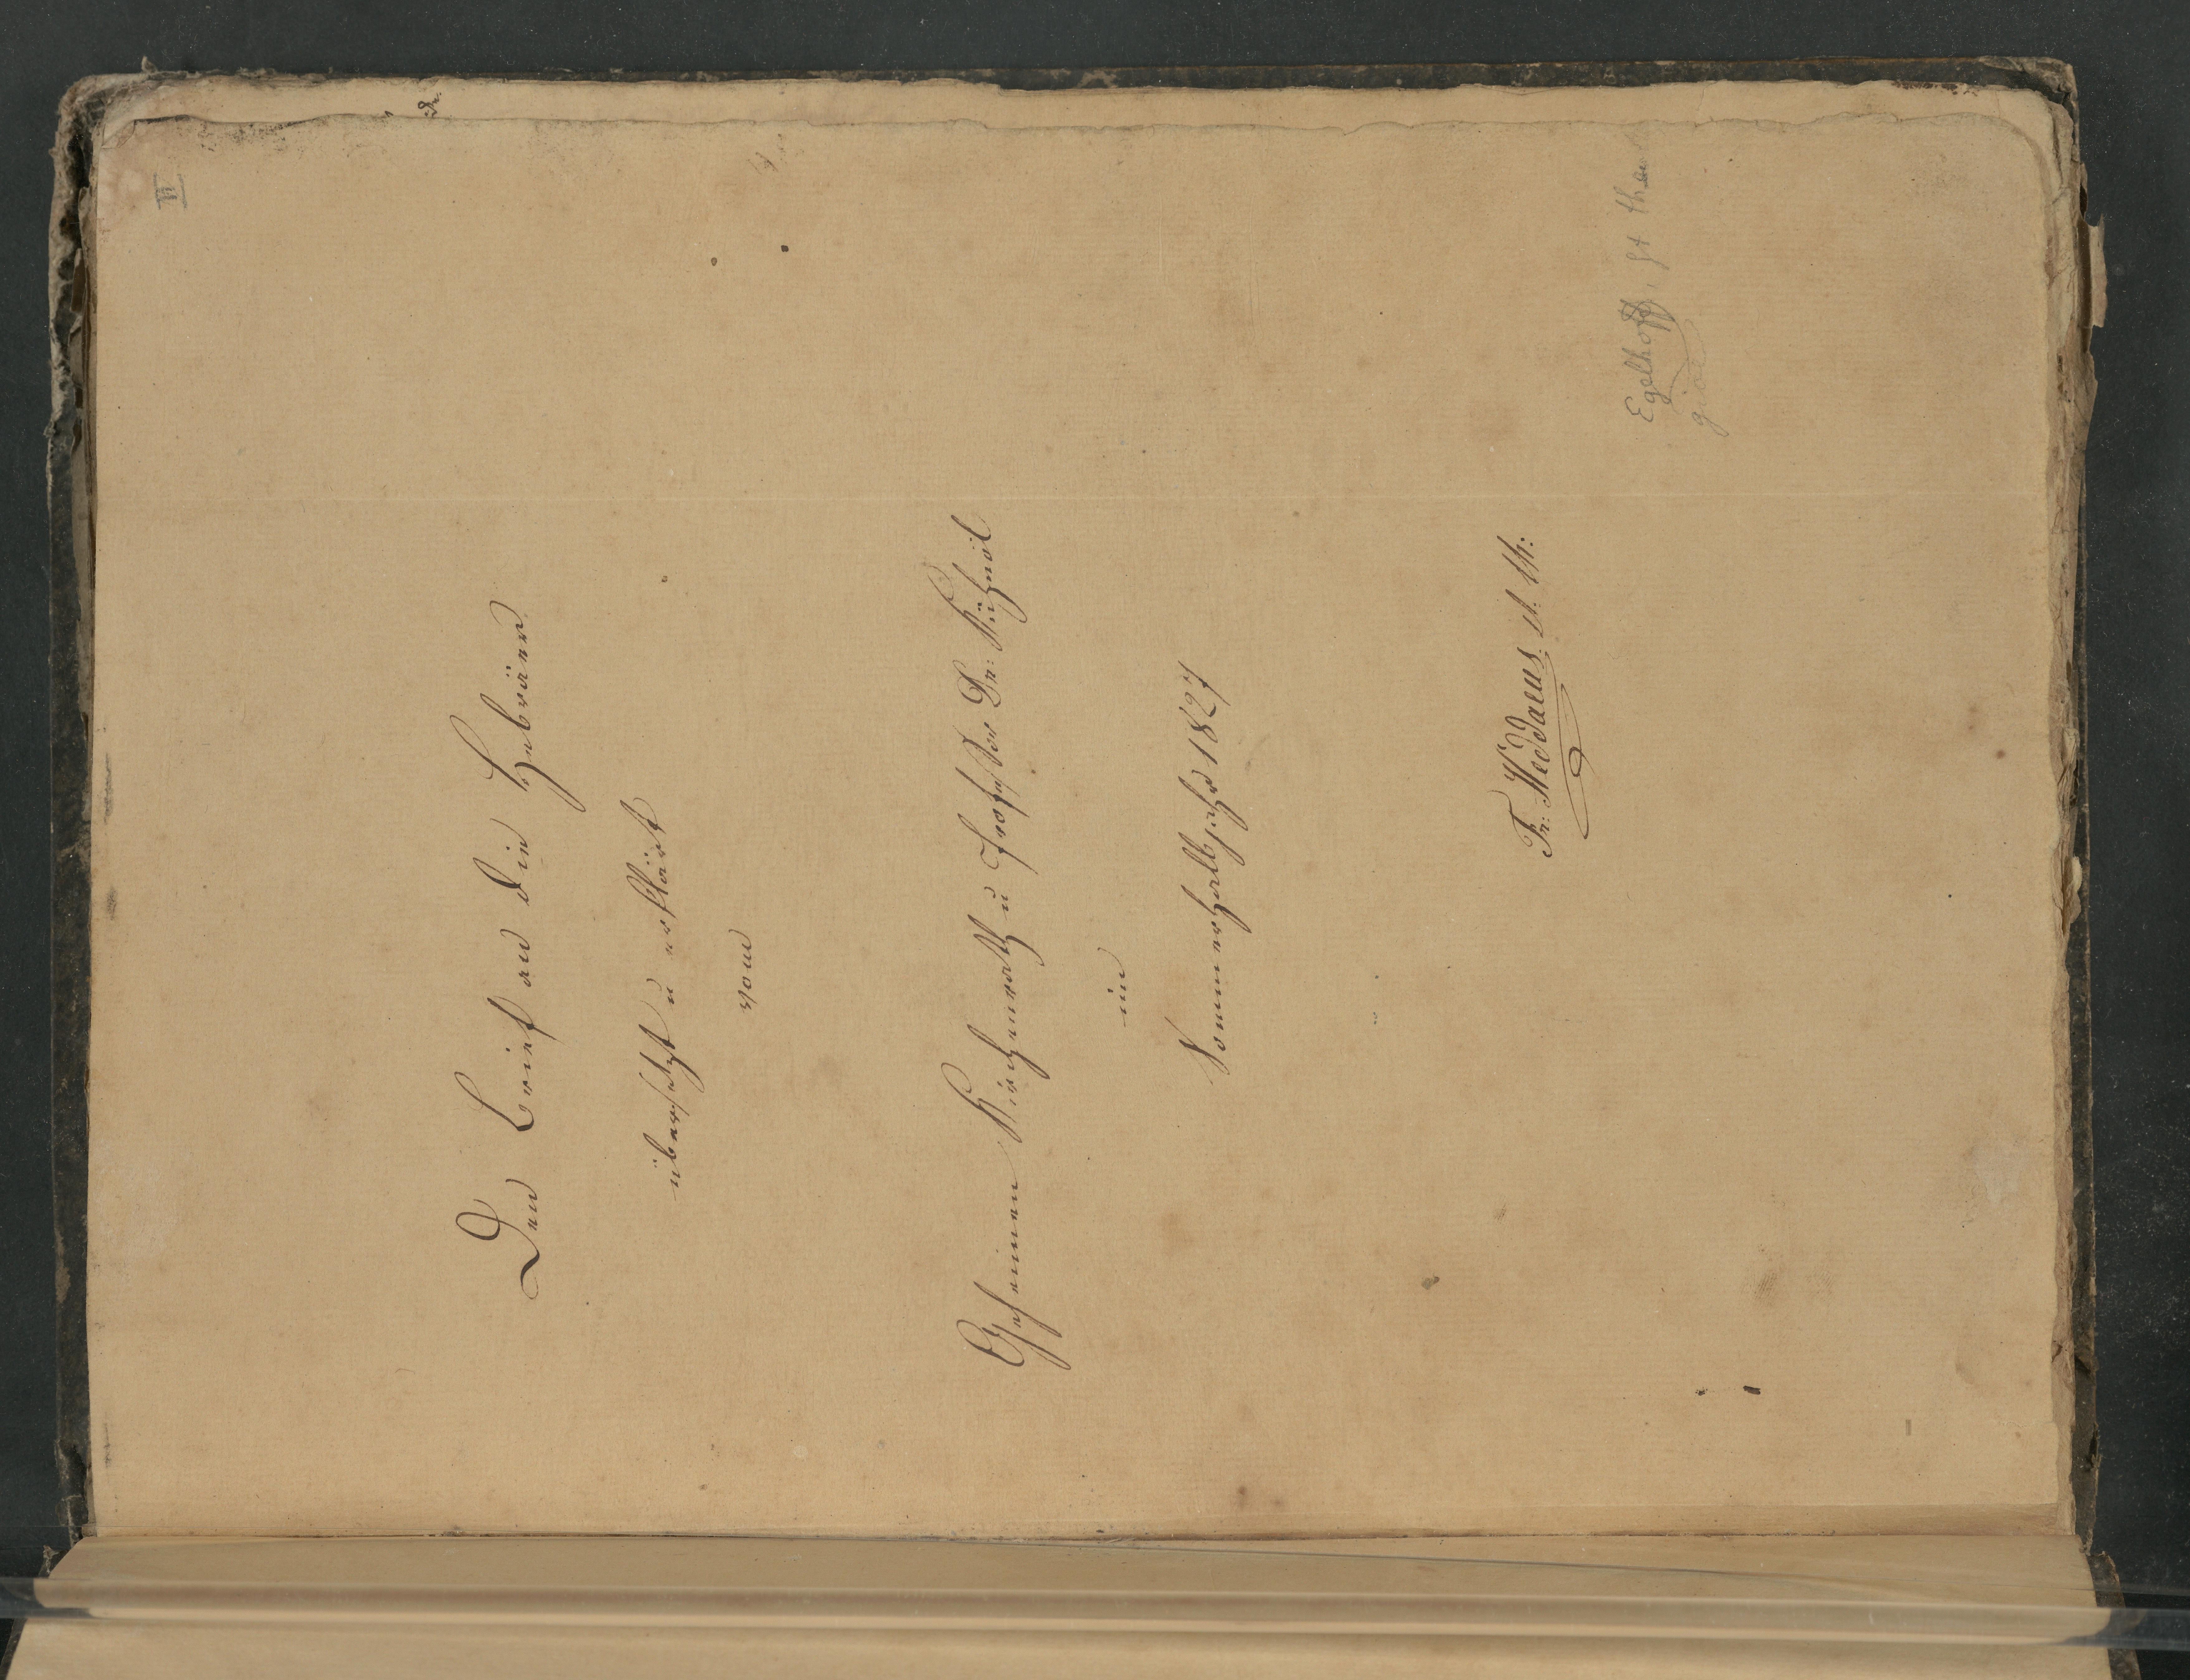 II
Der Brief an die Hebräer
übersetzt u erklärt
vom
Geheimen Kirchenrath u Professor Dr: Kühnöl
im
Sommerhalbjahr 1827
Fr: Weddaeus. st. th:
Egelhoff, st theol